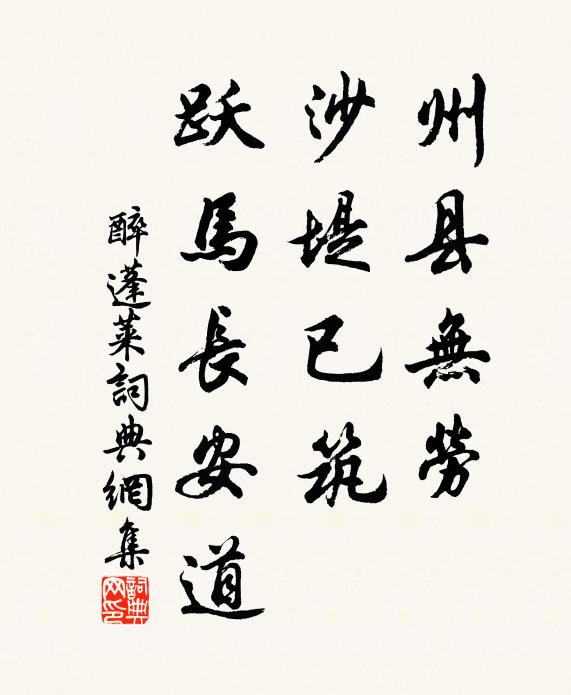 州县無勞
沙堤已筑
跃馬長安道
醉蓬莱詞典網集
詞典
网印